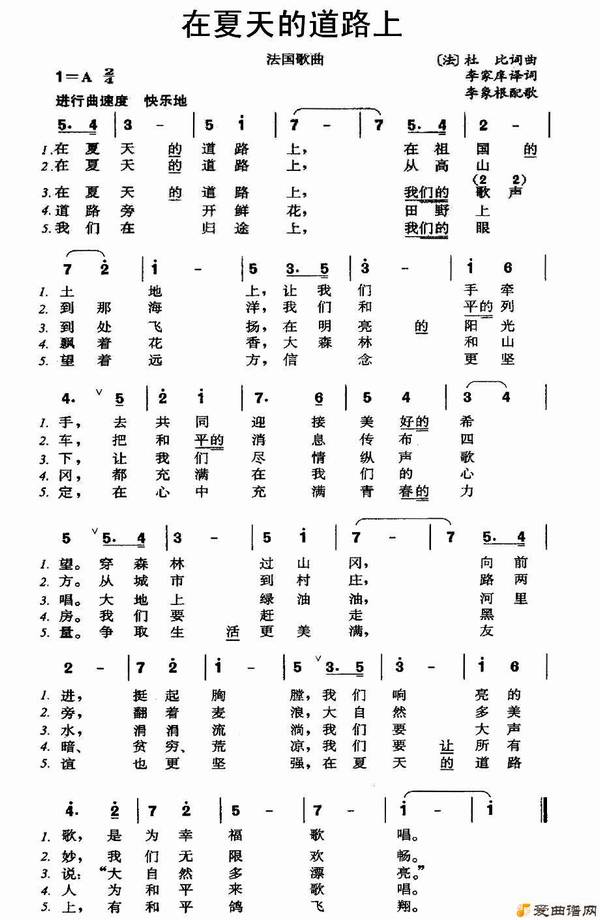 在夏天的道路上
法国歌曲
〔法〕杜 比词曲
1=A 2/4
李家庠译词
进行曲速度 快乐地
李象根配歌
5. 4 | 3 - | 5 1 | 7 - | 7 5. 4 | 2 - |
1.在夏天的道路上, 在祖国的
2.在夏天的道路上, 从高山
(2 2)
3.在夏天的道路上, 我们的歌声
4.道路旁 开鲜花, 田野上
5.我们在 归途上, 我们的眼
7 2 | 1 - | 5 3. 5 | 3 - | 1 6 |
1. 土 地 上, 让我们 手牵
2. 到那海 洋, 我们和平的列
3. 到处飞 扬, 在明亮的阳光
4. 飘着花 香, 大森林 和山
5. 望着远 方, 信念 更坚
4. ∨ 5 | 2 1 | 7. 6 | 5 4 | 3 4 |
1. 手, 去共同迎接美好的希
2. 车, 把和平的消息传布四
3. 下, 让我们尽情纵声歌
4. 冈, 都充满在我们的心
5. 定, 在心中充满青春的力
5 ∨ 5. 4 | 3 - | 5 1 | 7 - | 7 5. 4 |
1. 望。穿森林 过山冈, 向前
2. 方。从城市 到村庄, 路两
3. 唱。大地上 绿油油, 河里
4. 房。我们要 赶走 黑
5. 量。争取生活更美满, 友
2 - | 7 2 | 1 - | 5 ∨ 3. 5 | 3 - | 1 6 |
1. 进, 挺起胸 膛, 我们响亮的
2. 旁, 翻着麦 浪, 大自然多美
3. 水, 涓涓流 淌, 我们要大声
4. 暗、贫穷、荒 凉, 我们要让所有
5. 谊 也更坚 强, 在夏天的道路
4. 2 | 2 7 | 5 - | 7 - | 1 - | 1 ‖
1. 歌, 是为幸福歌唱。
2. 妙, 我们无限欢畅。
3. 说:“大自然多漂亮。”
4. 人 为和平来歌唱。
5. 上, 有和平鸽飞翔。
爱曲谱网